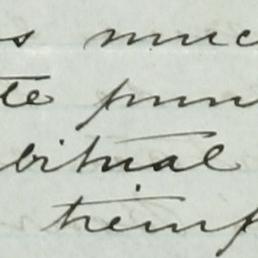 s muc
te pun
bitual
temp